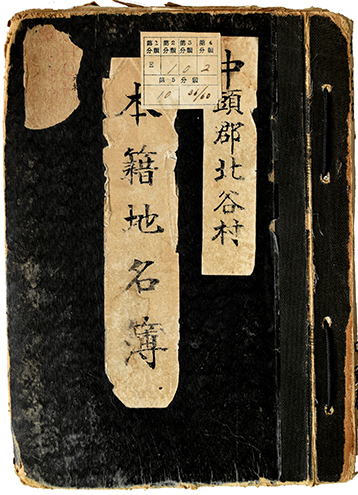 中頭郡北谷村
本籍地名簿
第1分類 第2分類 第3分類 第4分類
E 1 0 2
第5分類
10 36/60